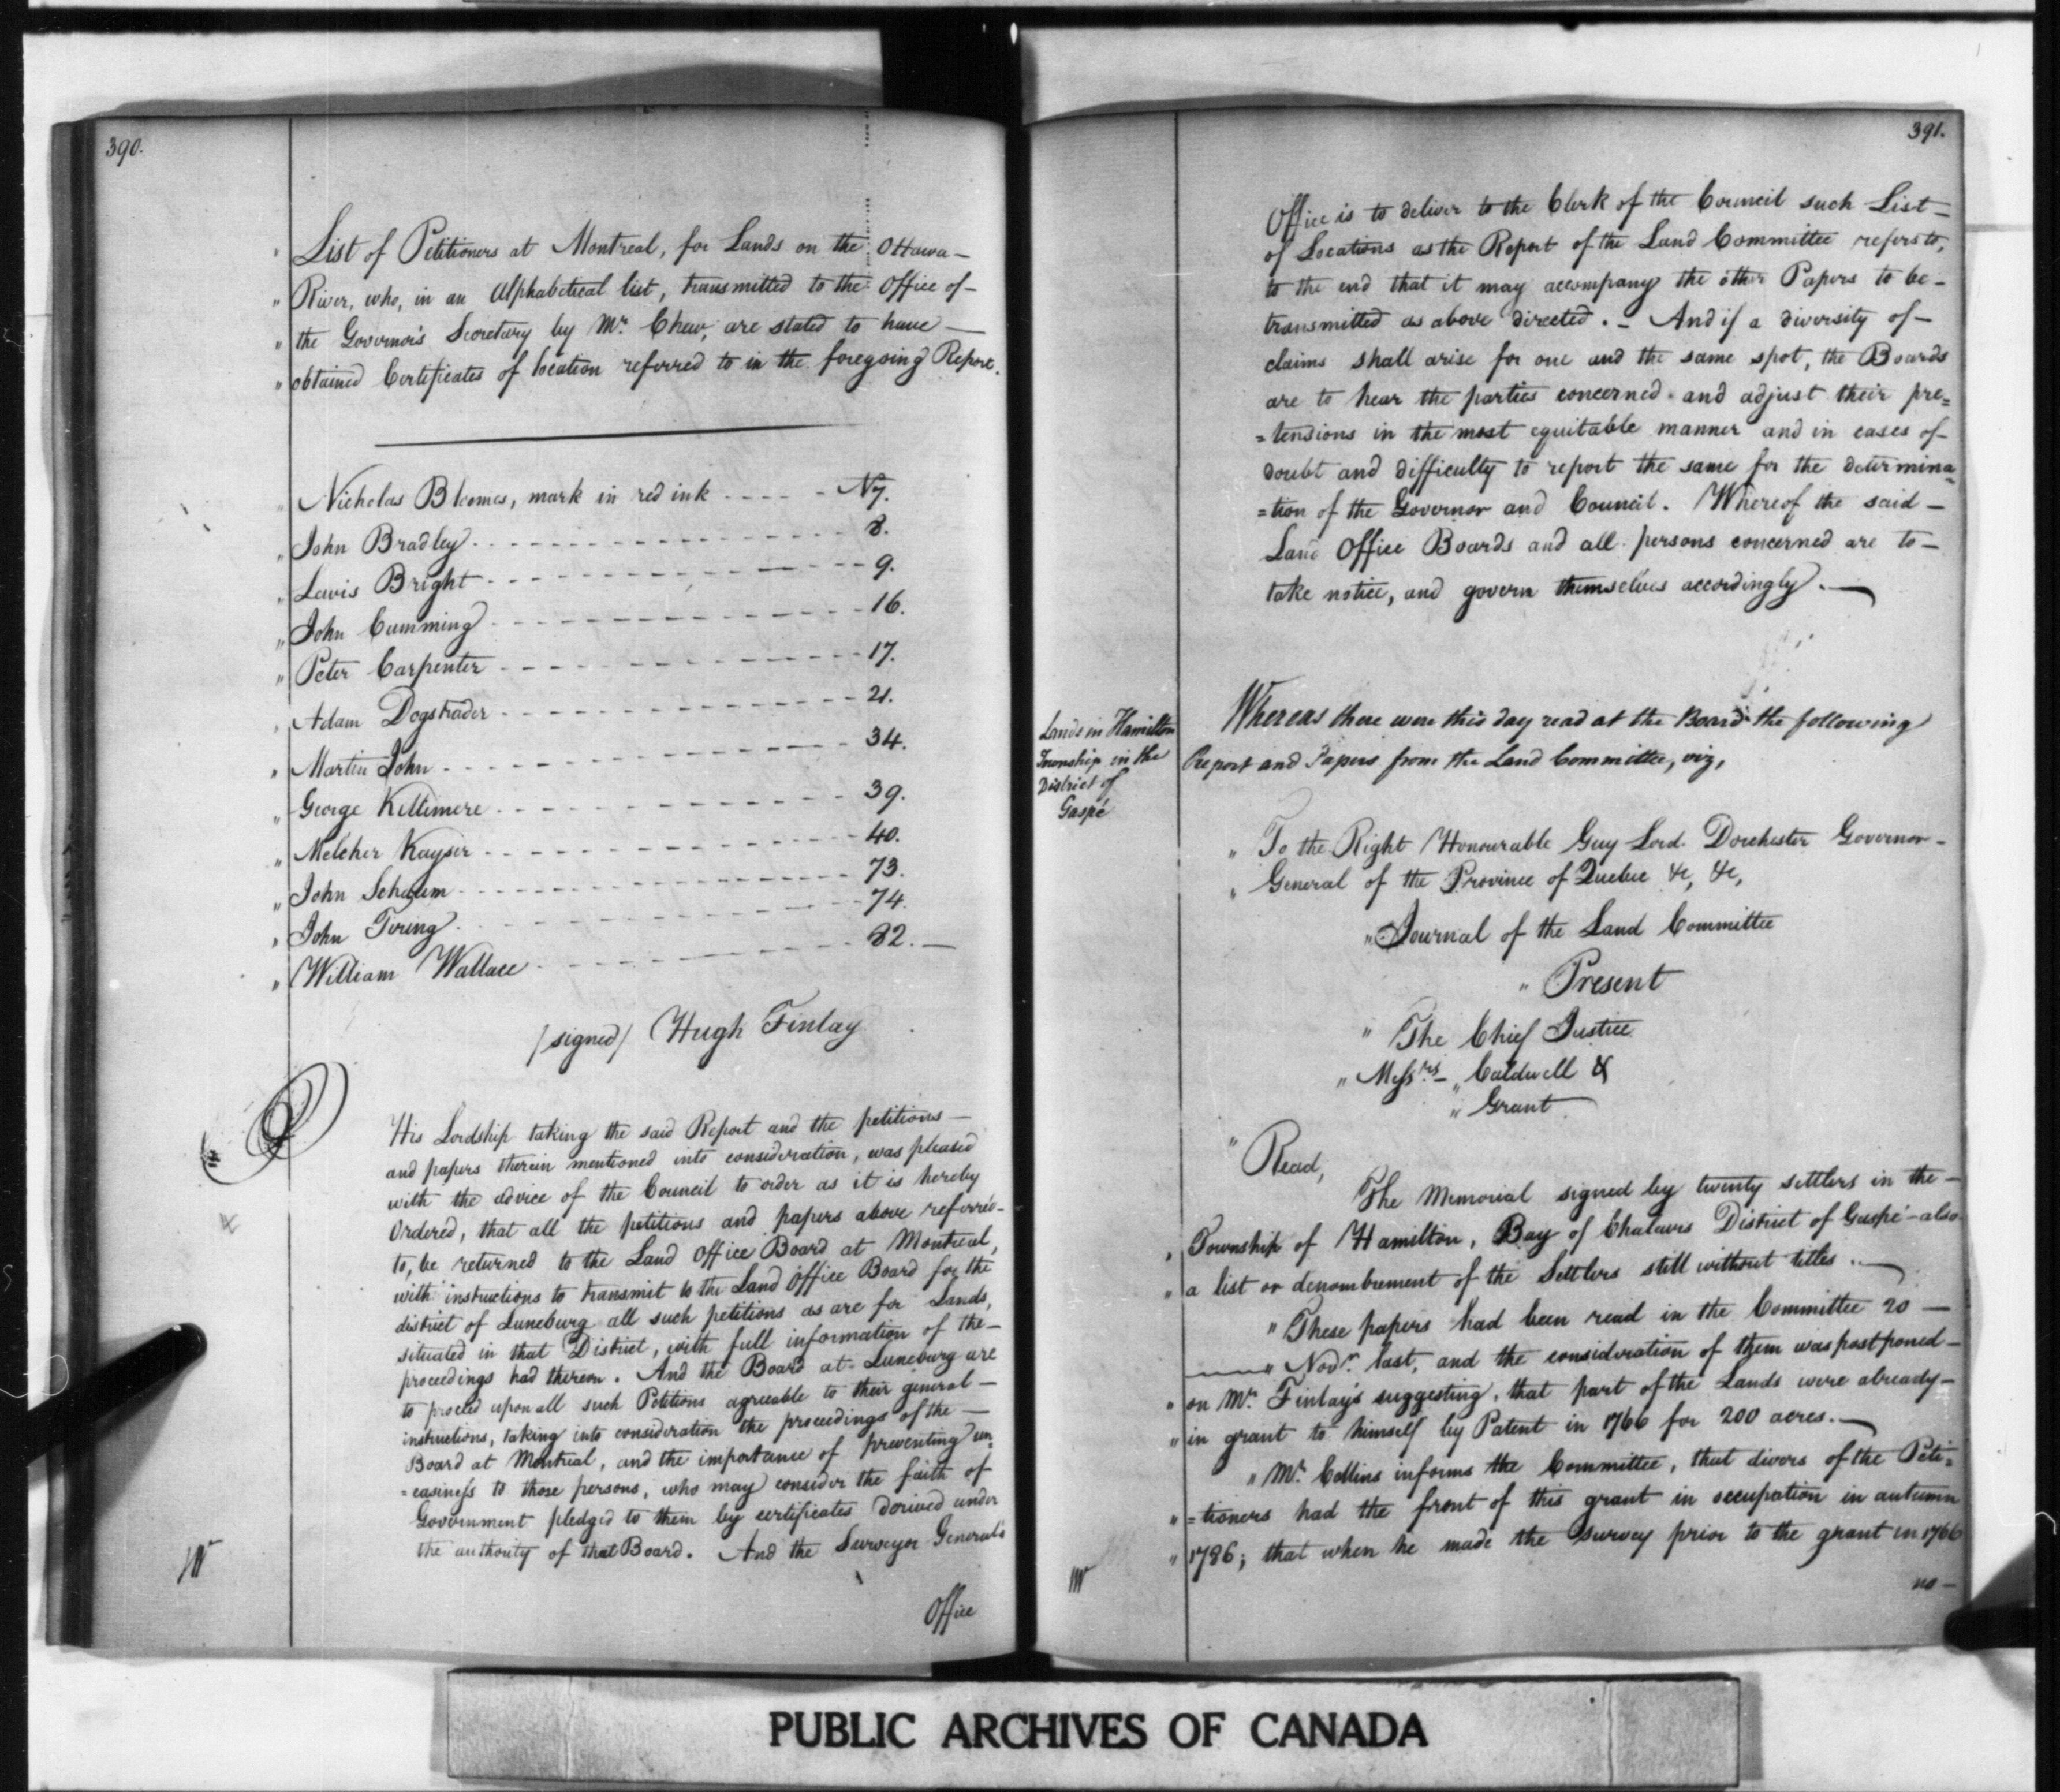 390.
" List of Petitioners at Montreal, for Lands on the Ottawa –
" River, who, in an Alphabetical list, transmitted to the Office of –
" the Governor's Secretary by Mr. Chew, are stated to have —
" obtained Certificates of location referred to in the foregoing Report.
" Nicholas Bloomes, mark in red ink - - - - - No 7.
" John Bradley - - - - - 8.
" Lewis Bright - - - - - 9.
" John Cumming - - - - - 16.
" Peter Carpenter - - - - - 17.
" Adam Dogstrader - - - - - 21.
" Martin John - - - - - 34.
" George Killimere - - - - - 39.
" Melcher Kayser - - - - - 40.
" John Schaum - - - - - 73.
" John Tiring - - - - - 74.
" William Wallace - - - - - 82. —
/signed/ Hugh Finlay
His Lordship taking the said Report and the petitions —
and papers therein mentioned into consideration, was pleased
with the advice of the Council to order as it is hereby
Ordered, that all the petitions and papers above referred –
to, be returned to the Land Office Board at Montreal,
with instructions to transmit to the Land Office Board for the
district of Luneburg all such petitions as are for Lands,
situated in that District, with full information of the –
proceedings had thereon. And the Board at Luneburg are
to proceed upon all such Petitions agreeable to their general —
instructions, taking into consideration the proceedings of the —
Board at Montreal, and the importance of preventing un=
=easiness to those persons, who may consider the faith of
Government pledged to them by certificates derived under
the authority of that Board. And the Surveyor General's
Office
391.
Office is to deliver to the Clerk of the Council such List –
of Locations as the Report of the Land Committee refers to,
to the end that it may accompany the other Papers to be –
transmitted as above directed. – And if a diversity of –
claims shall arise for one and the same spot, the Boards
are to hear the parties concerned and adjust their pre=
=tensions in the most equitable manner and in cases of –
doubt and difficulty to report the same for the determina=
=tion of the Governor and Council. Whereof the said –
Land Office Boards and all persons concerned are to –
take notice, and govern themselves accordingly. —
Lands in Hamilton
Township in the
District of
Gaspé
Whereas there were this day read at the Board the following
Report and Papers from the Land Committee, viz,
" To the Right Honourable Guy Lord Dorchester Governor –
" General of the Province of Quebec &c, &c,
" Journal of the Land Committee
" Present
" The Chief Justice
" Messrs – " Caldwell &
" Grant
" Read,
The Memorial signed by twenty settlers in the –
" Township of Hamilton, Bay of Chaleurs District of Gaspé – also
" a list or denombrement of the Settlers still without titles. —
" These papers had been read in the Committee 20 —
—— " Novr. last, and the consideration of them was postponed –
" on Mr. Finlay's suggesting, that part of the Lands were already –
" in grant to himself by Patent in 1766 for 200 acres. —
" Mr. Collins informs the Committee, that divers of the Peti=
" =tioners had the front of this grant in occupation in autumn
" 1786; that when he made the survey prior to the grant in 1766
no –
PUBLIC ARCHIVES OF CANADA